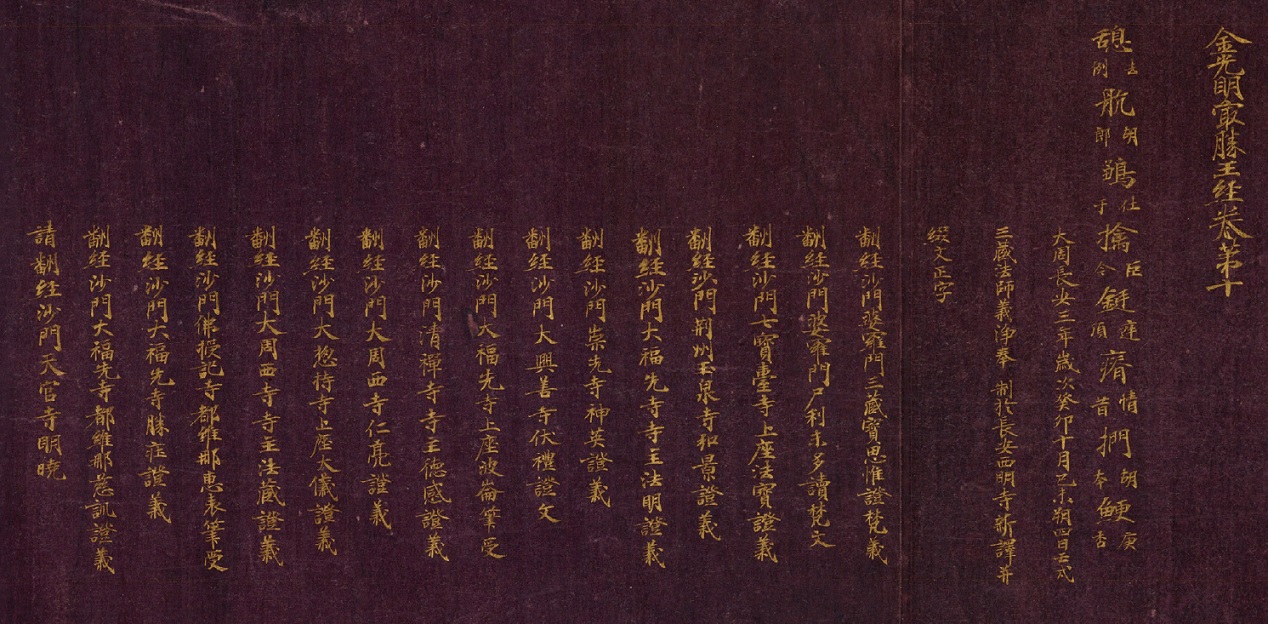 金光明最勝王經卷第十
憩去例航胡郎鵄仕于擒巨今鋌庭頂瘠情昔捫胡本鯁庚杏
大周長安三年歲次癸卯十月己未朔四日壬戌
三藏法師義淨奉 制於長安西明寺新譯并
綴文正字
翻經沙門婆羅門三藏寶思惟證梵義
翻經沙門婆羅門尸利末多讀梵文
翻經沙門七寶臺寺上座法寶證義
翻經沙門荊州玉泉寺和景證義
翻經沙門大福先寺寺主法明證義
翻經沙門崇先寺神英證義
翻經沙門大興善寺伏禮證文
翻經沙門大福先寺上座波崙筆受
翻經沙門清禪寺寺主德感證義
翻經沙門大周西寺仁亮證義
翻經沙門大惣持寺上座大儀證義
翻經沙門大周西寺寺主法藏證義
翻經沙門佛授記寺都維那惠表筆受
翻經沙門大福先寺勝莊證義
翻經沙門大福先寺都維那慈訓證義
請翻經沙門天宮寺明曉